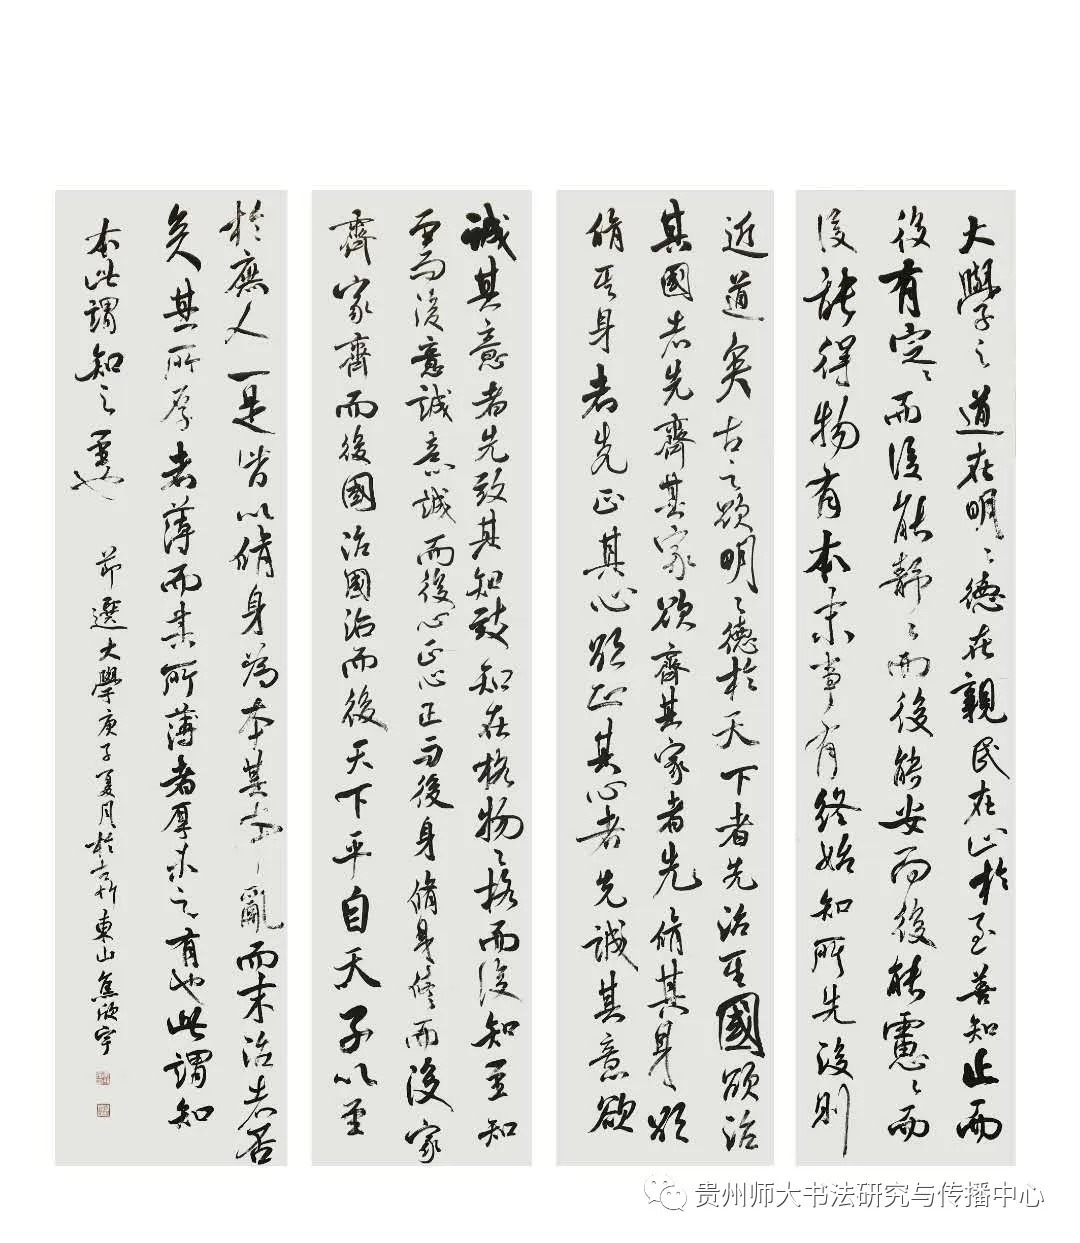 大學之道在明〻德在親民在止於至善知止而
後有定〻而後能靜〻而後能安而後能慮〻而
後能得物有本末事有終始知所先後則
近道矣古之欲明〻德於天下者先治其國欲治
其國者先齊其家欲齊其家者先脩其身欲
脩其身者先正其心欲正其心者先誠其意欲
誠其意者先致其知致知在格物〻格而後知至知
至而後意誠意誠而後心正心正而後身脩身修而後家
齊家齊而後國治國治而後天下平自天子以至
於庶人一是皆以脩身為本其本亂而末治者否
矣其所厚者薄而其所薄者厚未之有也此謂知
本此謂知之至也 節選大學庚子夏月於 東山焦欣宇
贵州师大书法研究与传播中心